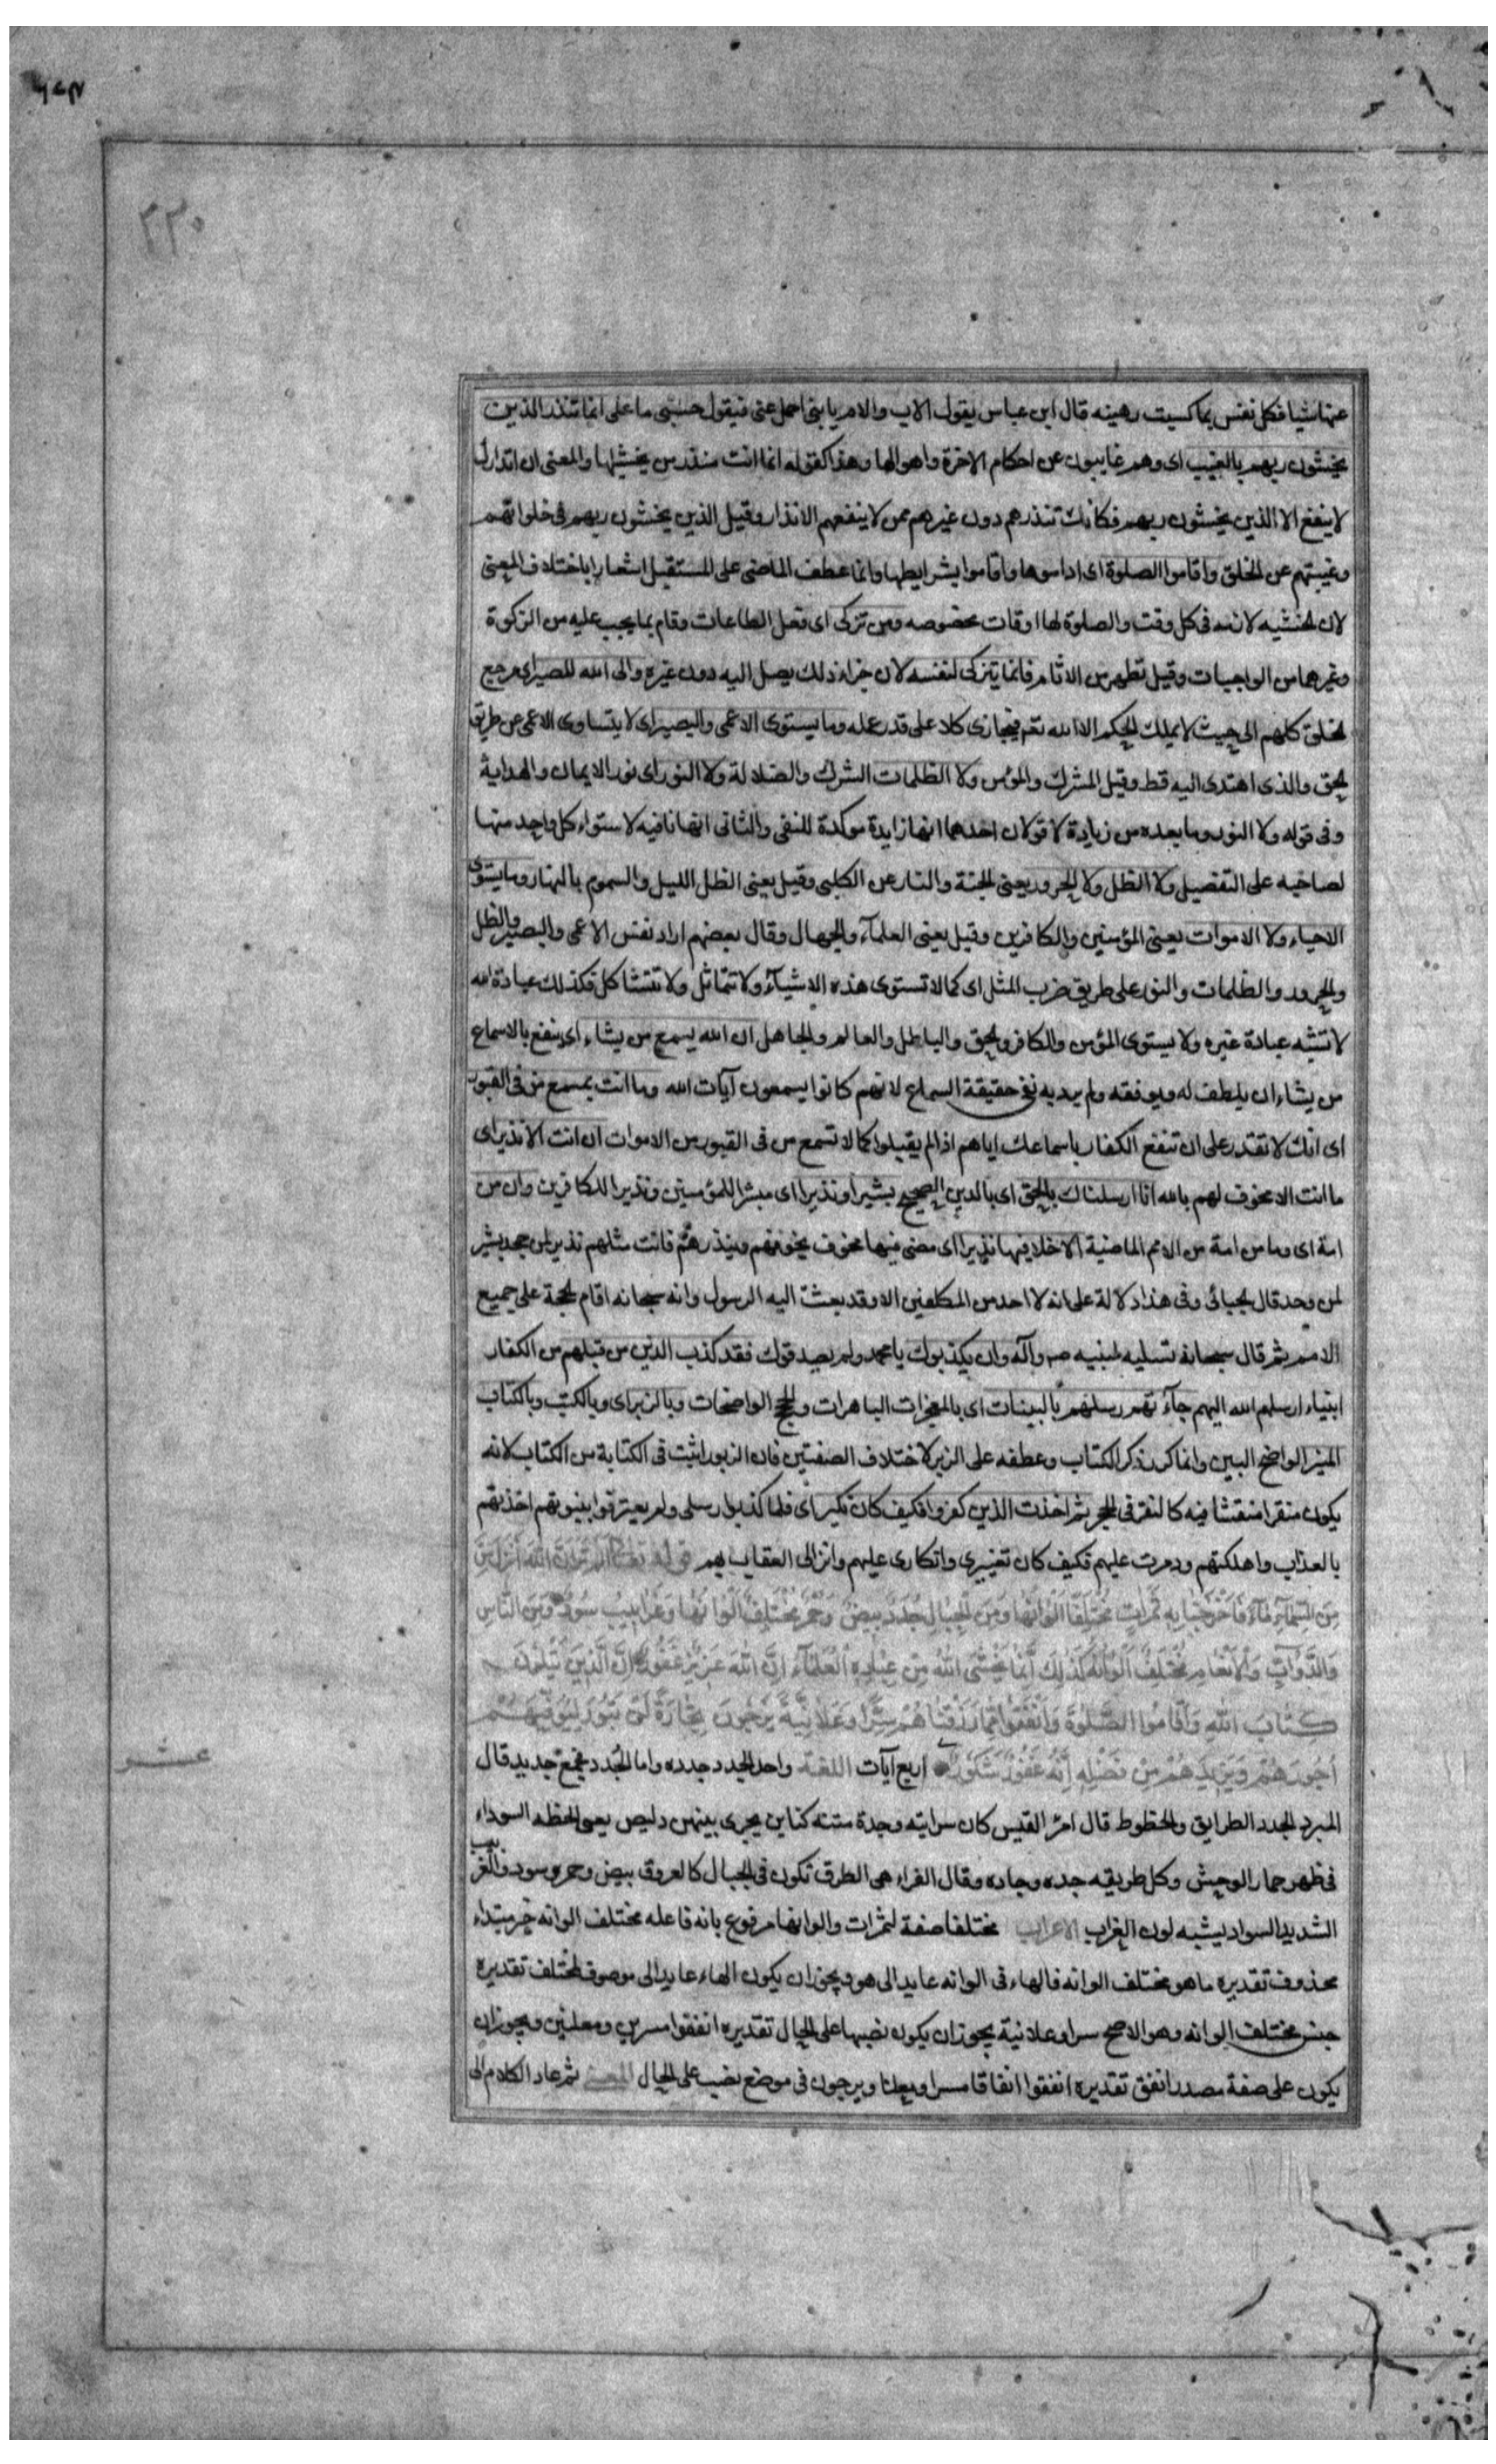 ۳۳۰
عنها شيا فكل نفس بما كسبت رهينه قال ابن عباس يقول الاب والام يا بني احمل عني فيقول حسبي ما علي انما تنذر الذين
يخشون ربهم بالغيب اى وهم غايبون عن احكام الاخرة واهوالها وهذا كقوله انما انت منذر من يخشيها والمعنى ان انذارك
لا ينفع الا الذين يخشون ربهم فكانك تنذرهم دون غيرهم ممن لا ينفعهم الانذار وقيل الذين يخشون ربهم فى خلواتهم
وغيبتهم عن الخلق واقاموا الصلوة اى اداموها واقاموا بشرايطها وانما عطف الماضى على المستقبل اشعارا باختلاف المعنى
لان الخشيه لازمه فى كل وقت والصلوة لها اوقات مخصوصه ومن تزكى اى فعل الطاعات وقام بما يجب عليه من الزكوة
وغيرهما من الواجبات وقيل تطهر من الاثام فانما يتزكى لنفسه لان جزاء ذلك يصل اليه دون غيره والى الله المصير اى مرجع
الخلق كلهم الى حيث لا يملك الحكم الا الله تعم فيجازى كلا على قدر عمله وما يستوى الاعمى والبصير اى لا يتساوى الاعمى عن طريق
الحق والذى اهتدى اليه قط وقيل المشرك والمؤمن ولا الظلمات الشرك والضلالة ولا النور اى نور الايمان والهداية
وفى قوله ولا النور وما بعده من زيادة لا قولان احدهما انها زايدة موكدة للنفى والثانى انها نافيه لاستواء كل واحد منها
لصاحبه على التفصيل ولا الظل ولا الحرور يعنى الجنة والنار عن الكلبى وقيل يعنى الظل الليل والسموم بالنهار وما يستوى
الاحياء ولا الاموات يعنى المؤمنين والكافرين وقيل يعنى العلماء والجهال وقال بعضهم اراد نفس الاعمى والبصير والظل
والحرور والظلمات والنور على طريق ضرب المثل اى كما لا تستوى هذه الاشيآء ولا تتماثل ولا تتشاكل فكذلك عبادة الله
لا تشبه عبادة غيره ولا يستوى المؤمن والكافر والحق والباطل والعالم والجاهل ان الله يسمع من يشاء اى ينفع بالاسماع
من يشاء ان يلطف له ويوفقه ولم يرد به نفى حقيقة السماع لانهم كانوا يسمعون آيات الله وما انت بمسمع من فى القبور
اى انك لا تقدر على ان تنفع الكفار باسماعك اياهم اذا لم يقبلوا كما لا تسمع من فى القبور من الاموات ان انت الا نذير اى
ما انت الا مخوف لهم بالله انا ارسلناك بالحق اى بالدين الصحيح بشيرا ونذيرا اى مبشرا للمؤمنين ونذيرا للكافرين وان من
امة اى وما من امة من الامم الماضية الا خلا فيها نذيرا اى مضى فيها مخوف يخوفهم وينذرهم فانت مثلهم نذير لمن جحد بشير
لمن وحد قال الجبائى وفى هذا دلالة على انه لا احد من المكلفين الا وقد بعث اليه الرسول وانه سبحانه اقام الحجة على جميع
الامم ثم قال سبحانه تسليه لنبيه صم وآله وان يكذبوك يا محمد ولم يصدقوك فقد كذب الذين من قبلهم من الكفار
انبياء ارسلهم الله اليهم جآءتهم رسلهم بالبينات اى بالمعجزات الباهرات والحجج الواضحات وبالزبر اى وبالكتب وبالكتاب
المنير الواضح البين وانما كرر ذكر الكتاب وعطفه على الزبر لاختلاف الصفتين فان الزبور اثبت فى الكتابة من الكتاب لانه
يكون منقرا منقشا فيه كالنقر فى الحجر ثم اخذت الذين كفروا فكيف كان نكير اى فلما كذبوا رسلى ولم يعترفوا بنبوتهم اخذتهم
بالعذاب واهلكتهم ودمرت عليهم فكيف كان تغييرى وانكارى عليهم وانزالى العقاب بهم قوله تعالى الم تر ان الله انزل من
من السمآء ماء فاخرجنا به ثمرات مختلفا الوانها ومن الجبال جدد بيض وحمر مختلف الوانها وغرابيب سود ومن الناس
والدوابّ والانعام مختلف الوانه كذلك انما يخشى الله من عباده العلمآء ان الله عزيز غفور ان الذين يتلون
كتاب الله واقاموا الصلوة وانفقوا مما رزقناهم سرّا وعلانية يرجون تجارة لن تبور ليوفيهم
اجورهم ويزيدهم من فضله انه غفور شكور اربع آيات اللغة واحد الجدد جدده واما الجُدد فجمع جديد قال
عشر
المبرد الجدد الطرايق والخطوط قال امرؤ القيس كان سراته وجدة متنه كناين يجرى بينهن دليص يعنى الخطه السوداء
فى ظهر حمار الوحش وكل طريقه جده وجاده وقال الفراء هى الطرق تكون فى الجبال كالعروق بيض وحمر وسود والغربيب
الشديد السواد يشبه لون الغراب الاعراب مختلفا صفة لثمرات والوانها مرفوع بانه فاعله مختلف الوانه خبر مبتداء
محذوف تقديره ما هو مختلف الوانه فالهاء فى الوانه عايد الى هو ويجوز ان يكون الهاء عايدا الى موصوف لمختلف تقديره
جنس مختلف الوانه وهو الاصح سرا وعلانية يجوز ان يكون نصبها على الحال تقديره انفقوا مسرين ومعلنين ويجوز ان
يكون على صفة مصدر انفق تقديره انفقوا انفاقا مسرا ومعلنا ويرجون فى موضع نصب على الحال المعنى ثم عاد الكلام الى